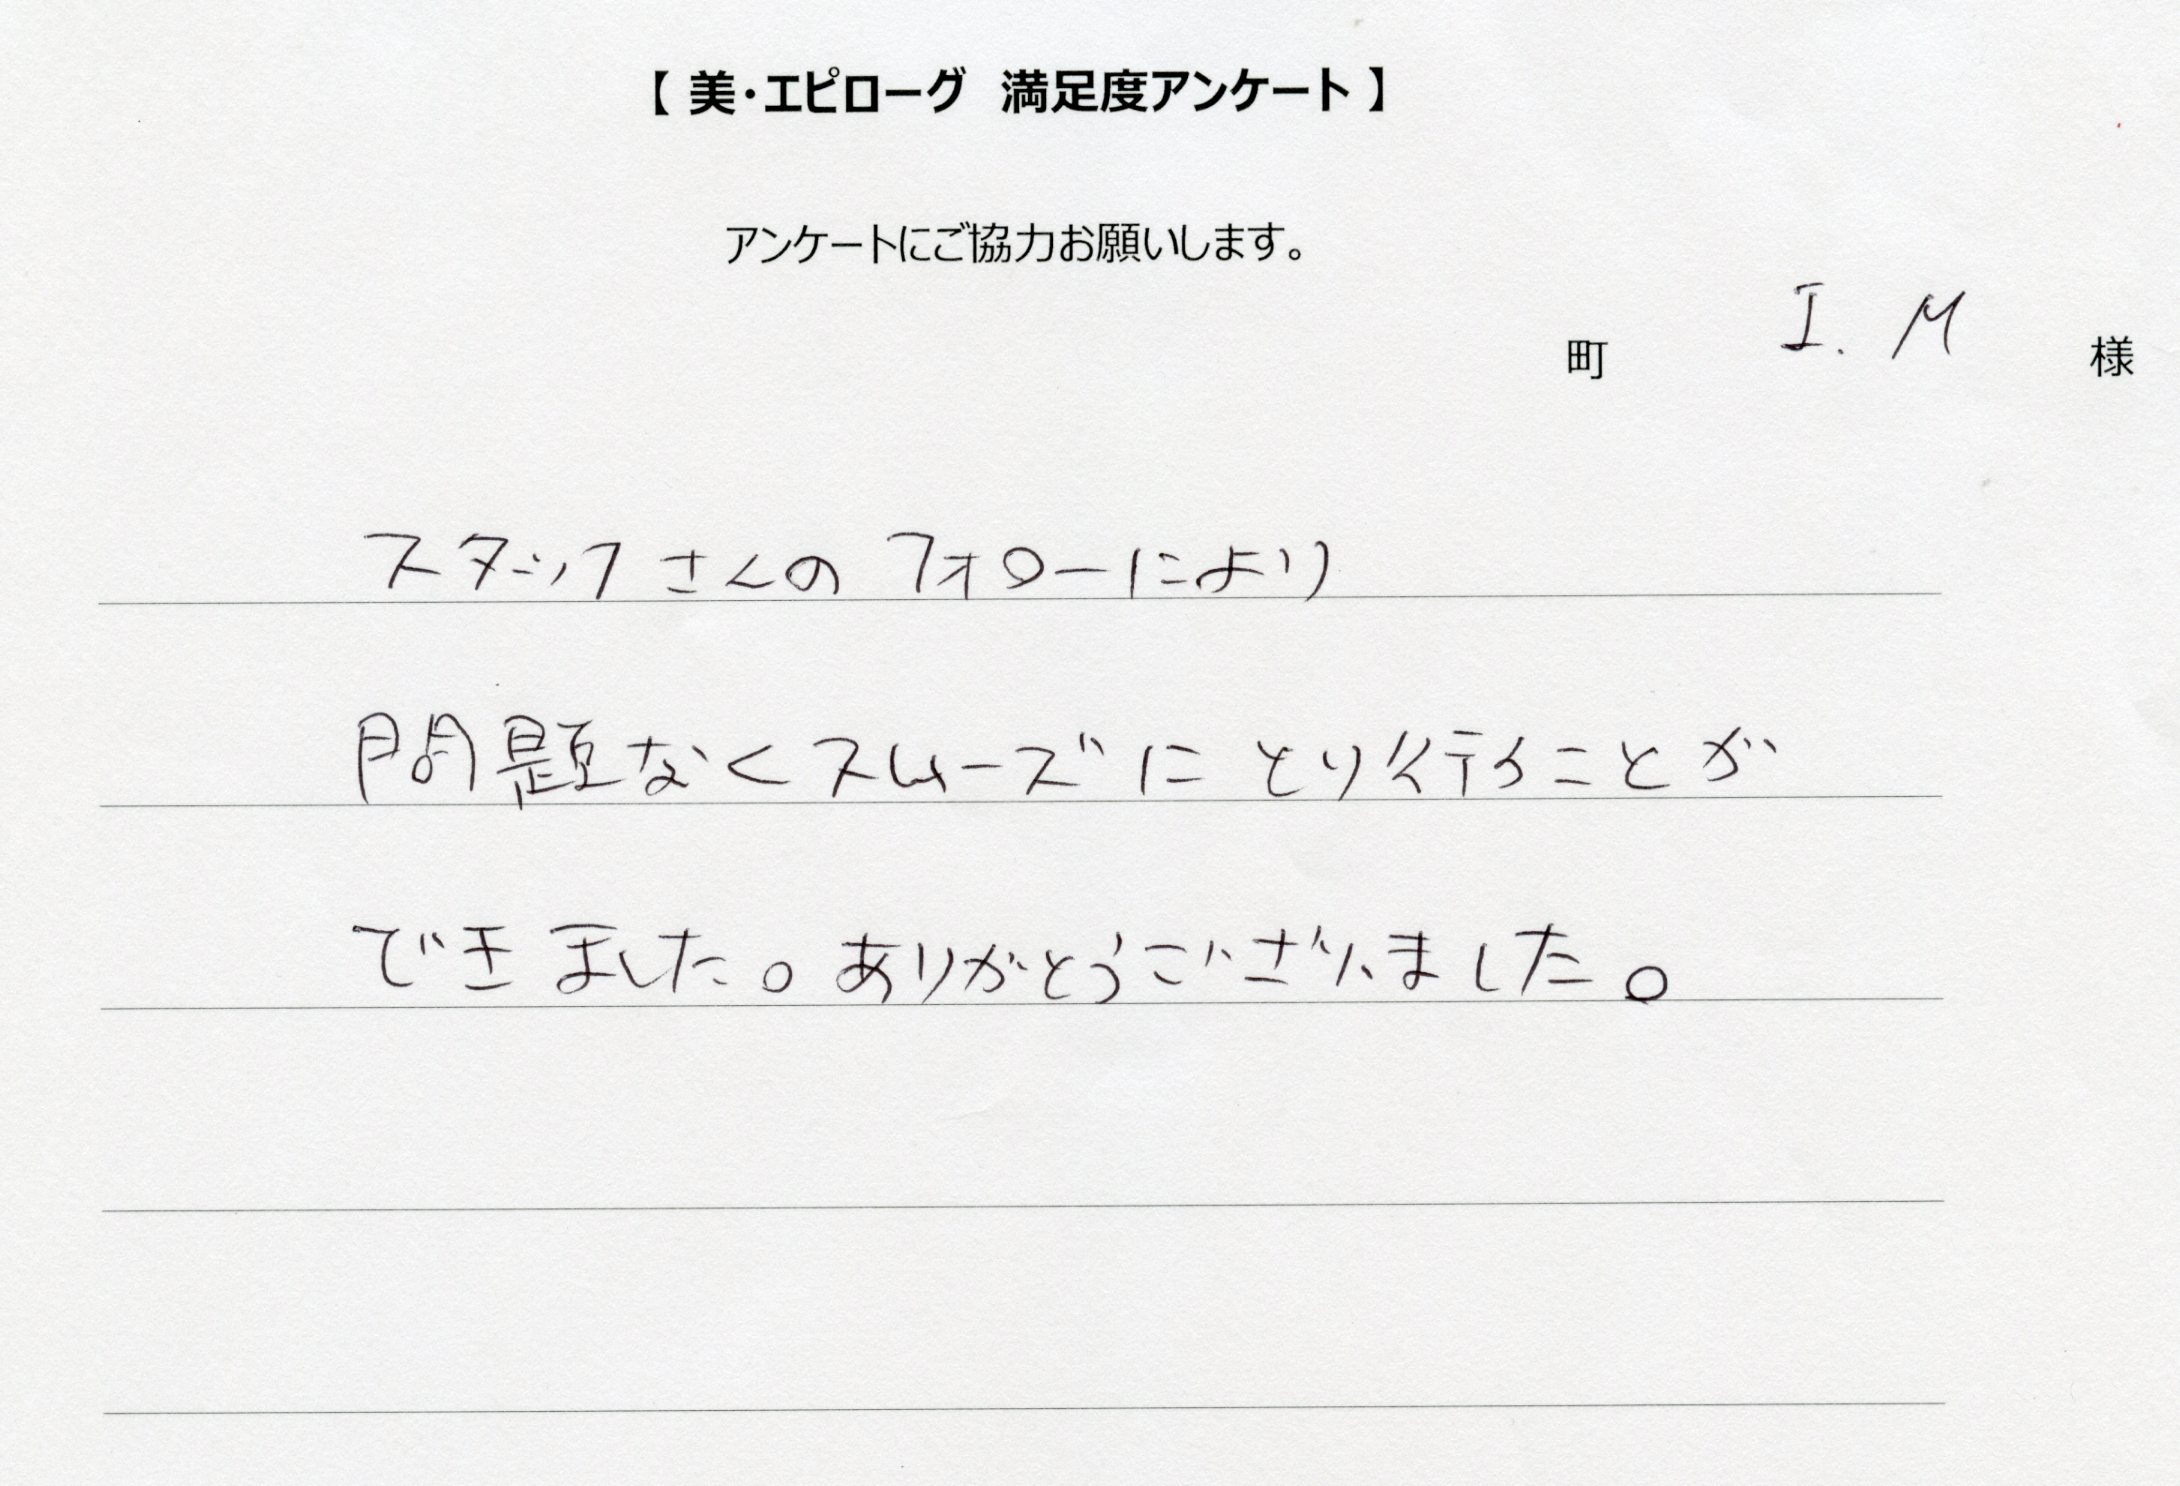 【 美・エピローグ 満足度アンケート 】
アンケートにご協力お願いします。
町 I. M 様
スタッフさんの フォローにより
問題なくスムーズに とり行うことが
できました。ありがとうございました。